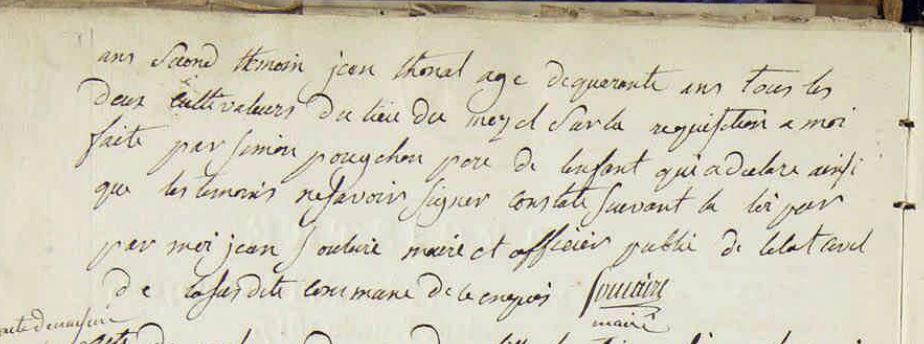 ans second temoin jean thonat age de quarante ans tous les
deux cultivateurs du lieu du mezel sur la requisition a moi
faite par simon pougchon pere de lenfant qui a declare ainsi
que les temoins ne savoir signer constate suivant la loi par
par moi jean soulaire maire et officier public de letat civil
de la susdite commune de
maire
acte de naissance